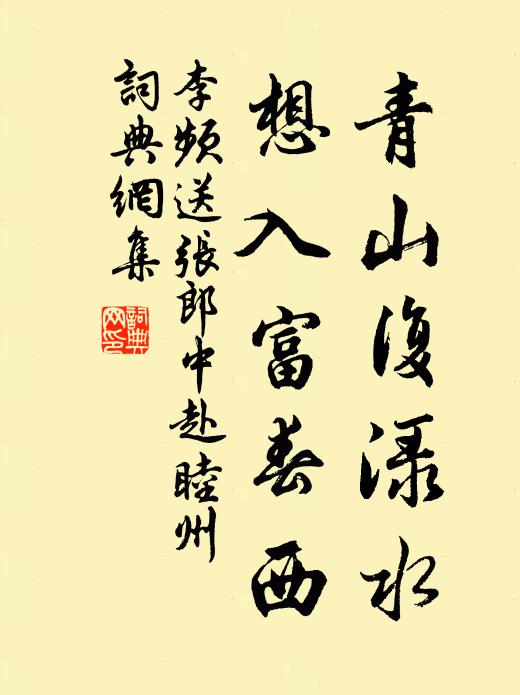 青山復渌水
想入富春西
李頻送張郎中赴睦州
詞典網集
詞典网印